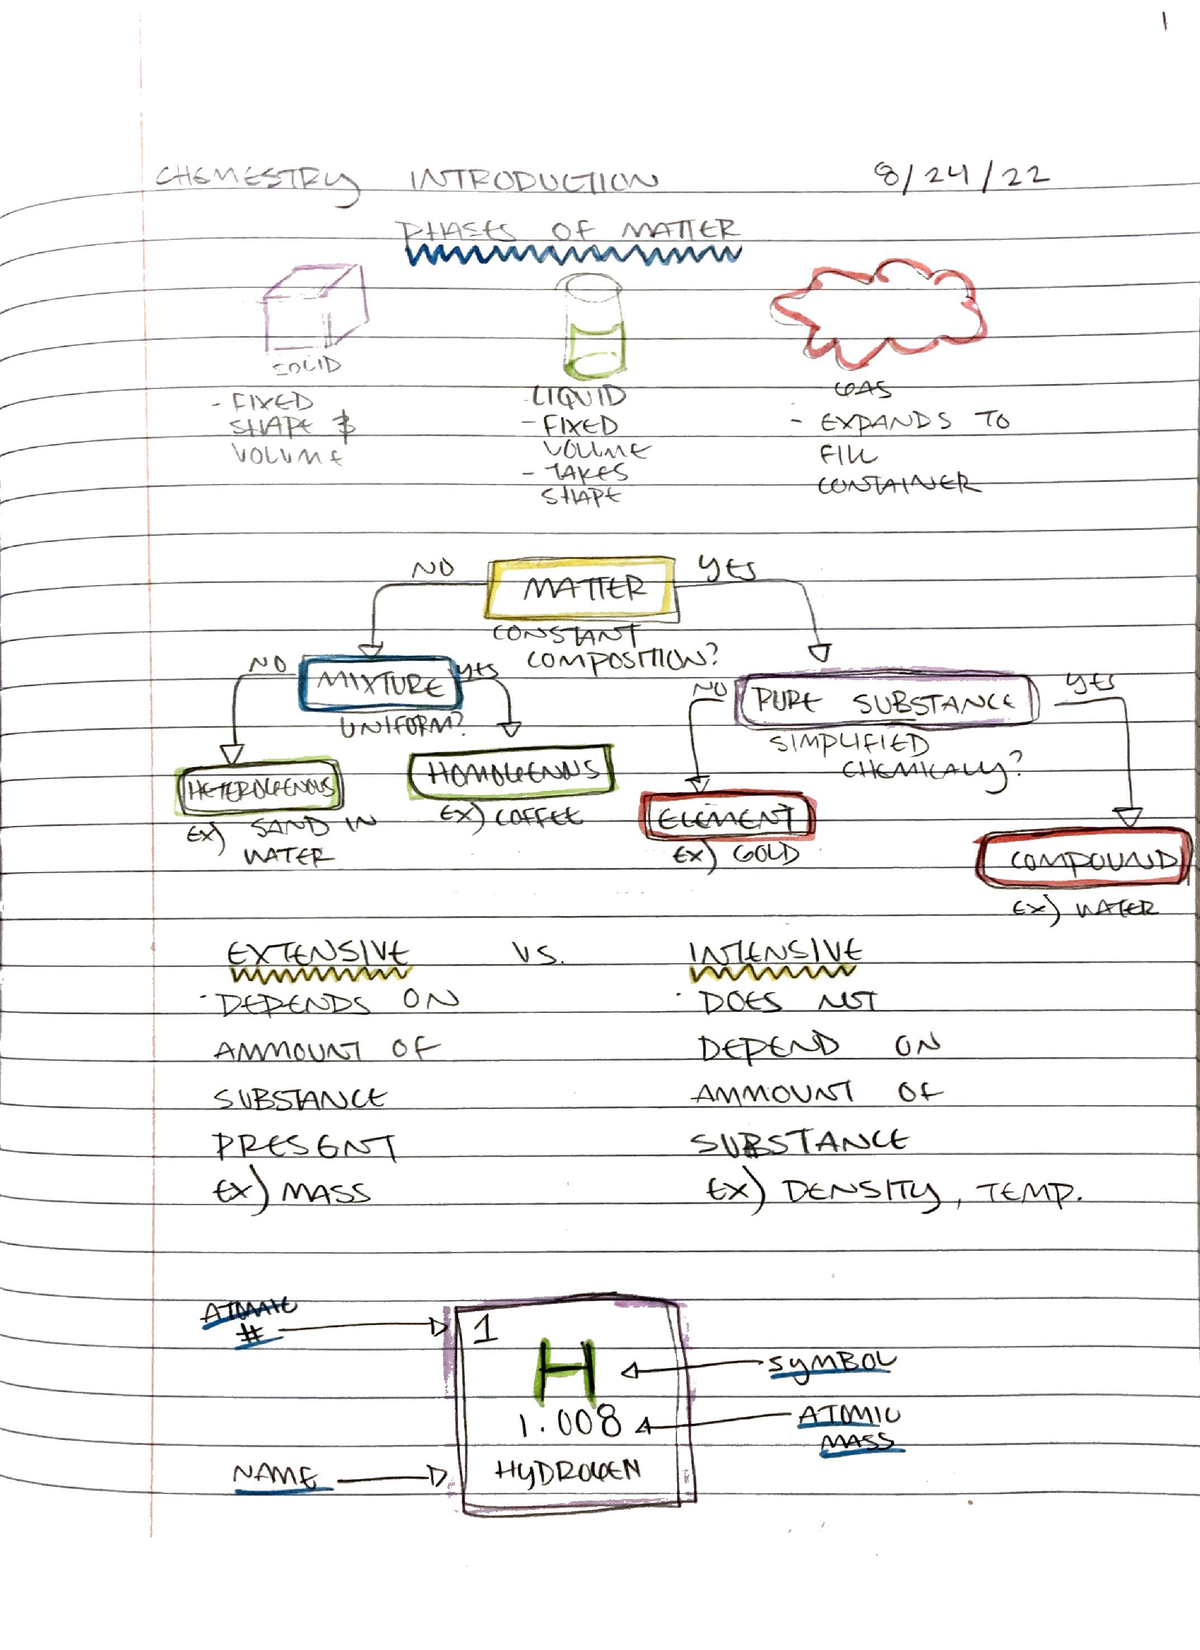 1
CHEMESTRY INTRODUCTION 8/24/22
PHASES OF MATTER
SOLID
- FIXED
SHAPE &
VOLUME
LIQUID
- FIXED
VOLUME
- TAKES
SHAPE
GAS
- EXPANDS TO
FILL
CONTAINER
NO MATTER YES
CONSTANT
COMPOSITION?
NO MIXTURE YES
UNIFORM?
NO PURE SUBSTANCE YES
SIMPLIFIED
CHEMICALLY?
HETEROGENOUS
EX) SAND IN
WATER
HOMOGENOUS
EX) COFFEE
ELEMENT
EX) GOLD
COMPOUND
EX) WATER
EXTENSIVE VS. INTENSIVE
· DEPENDS ON
AMMOUNT OF
SUBSTANCE
PRESENT
EX) MASS
· DOES NOT
DEPEND ON
AMMOUNT OF
SUBSTANCE
EX) DENSITY, TEMP.
ATOMIC
#
1
H
SYMBOL
1.008
ATOMIC
MASS
NAME
HYDROGEN